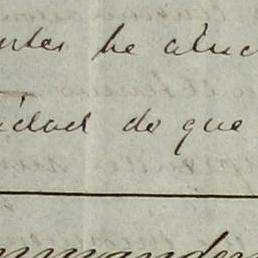 ntes he aluc
idad do que
mmander